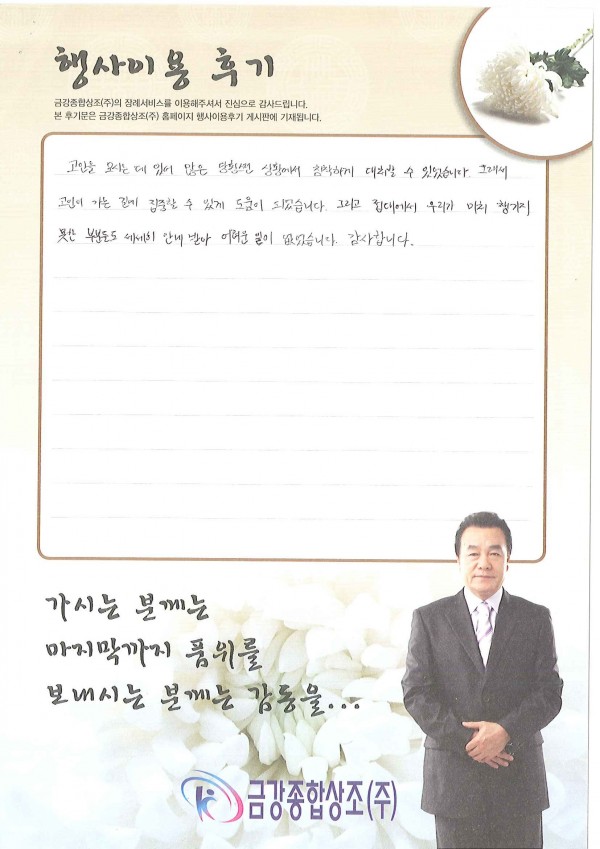 행사이용 후기
금강종합상조(주)의 장례서비스를 이용해주셔서 진심으로 감사드립니다.
본 후기문은 금강종합상조(주) 홈페이지 행사이용후기 게시판에 기재됩니다.
고인을 모시는 데 있어 많은 당황스런 상황에서 침착하게 대처할 수 있었습니다. 그래서
고인이 가는 길에 집중할 수 있게 도움이 되었습니다. 그리고 접대에서 우리가 미처 챙기지
못한 부분들도 세세히 안내 받아 어려운 일이 없었습니다. 감사합니다.
가시는 분께는
마지막까지 품위를
보내시는 분께는 감동을...
금강종합상조(주)